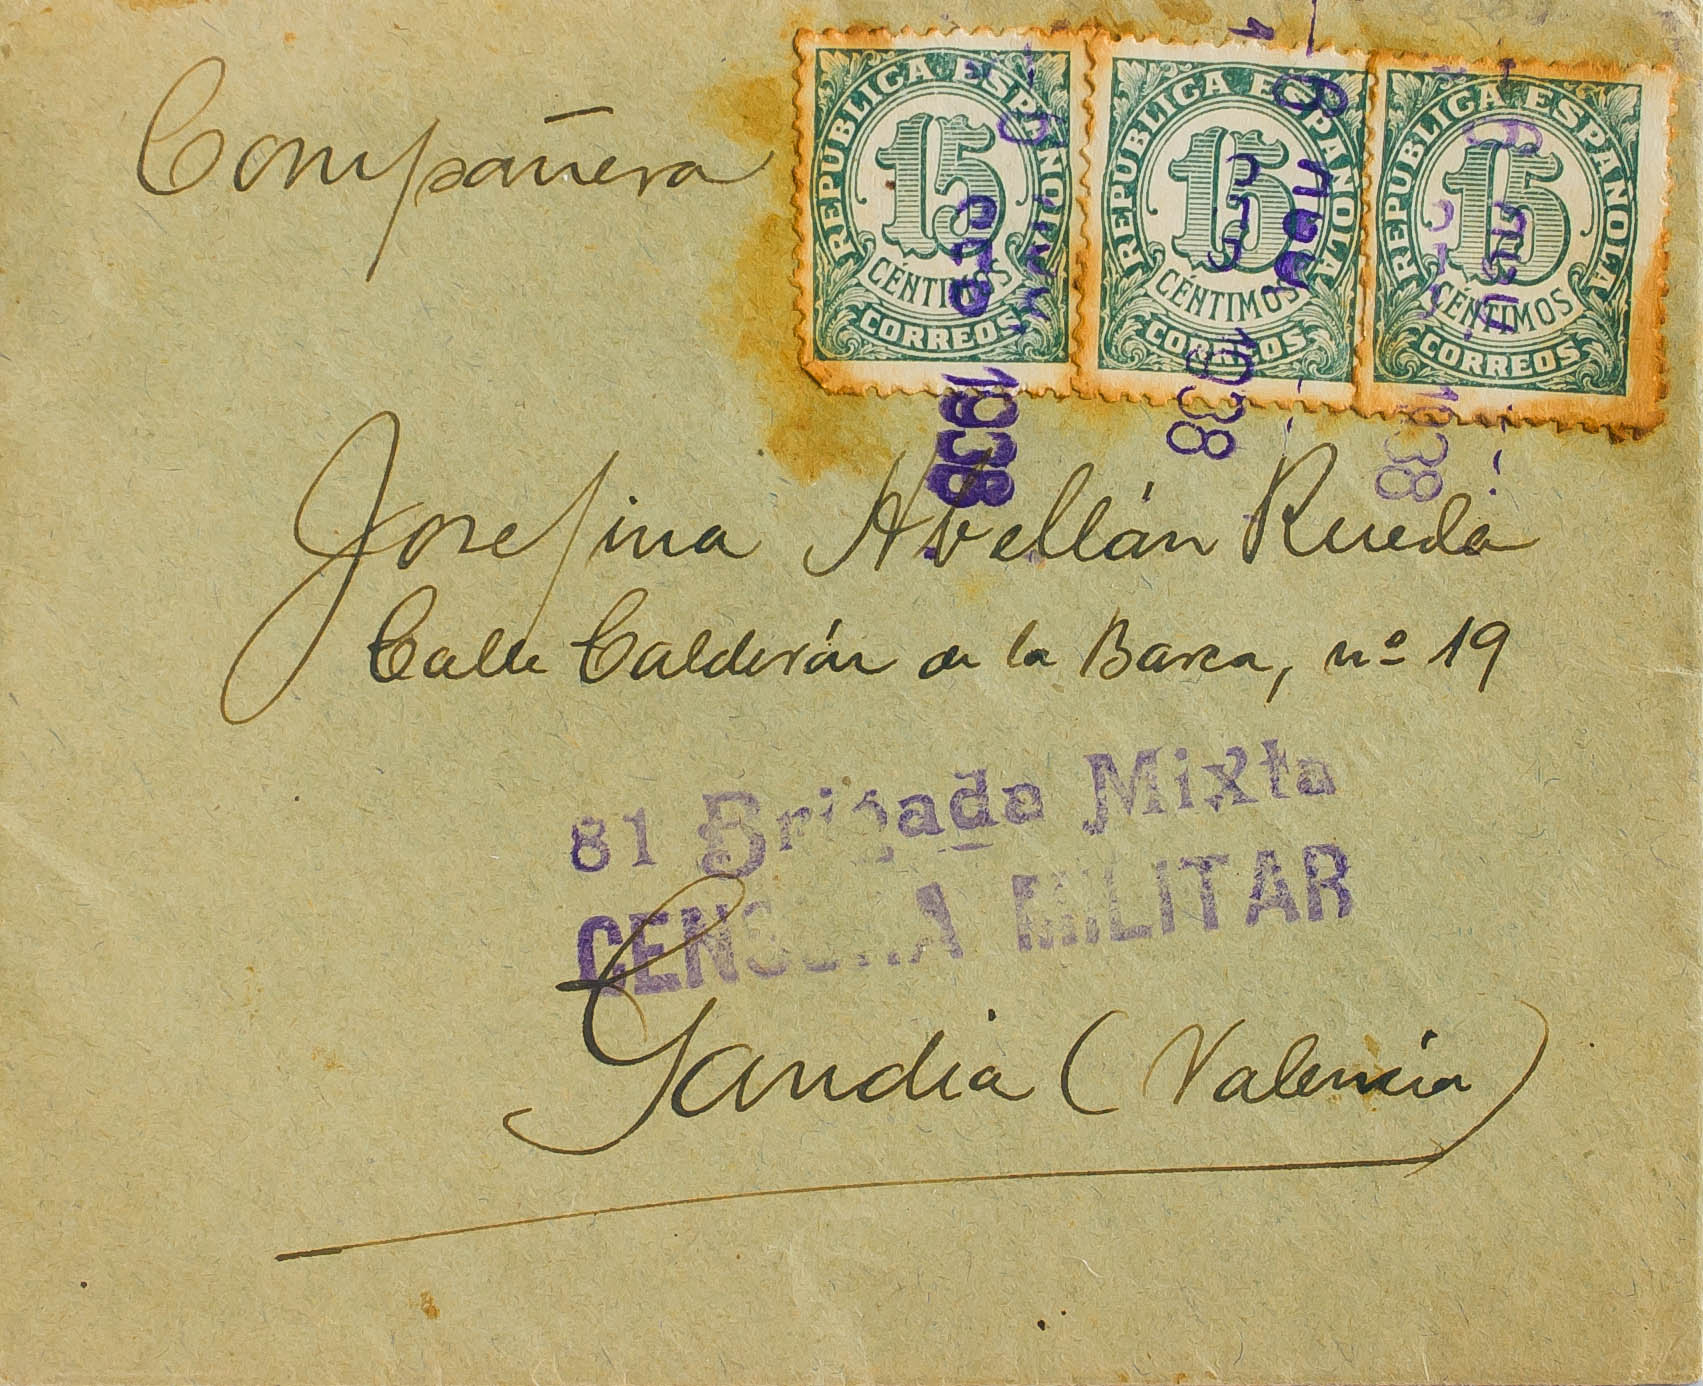 Compañera
REPUBLICA ESPAÑOLA
15
CÉNTIMOS
CORREOS
REPUBLICA ESPAÑOLA
15
CÉNTIMOS
CORREOS
REPUBLICA ESPAÑOLA
15
CÉNTIMOS
CORREOS
1938
1938
1938
1938
Josefina Abellán Rueda
Calle Calderón de la Barca, nº 19
81 Brigada Mixta
CENSURA MILITAR
Gandia (Valencia)